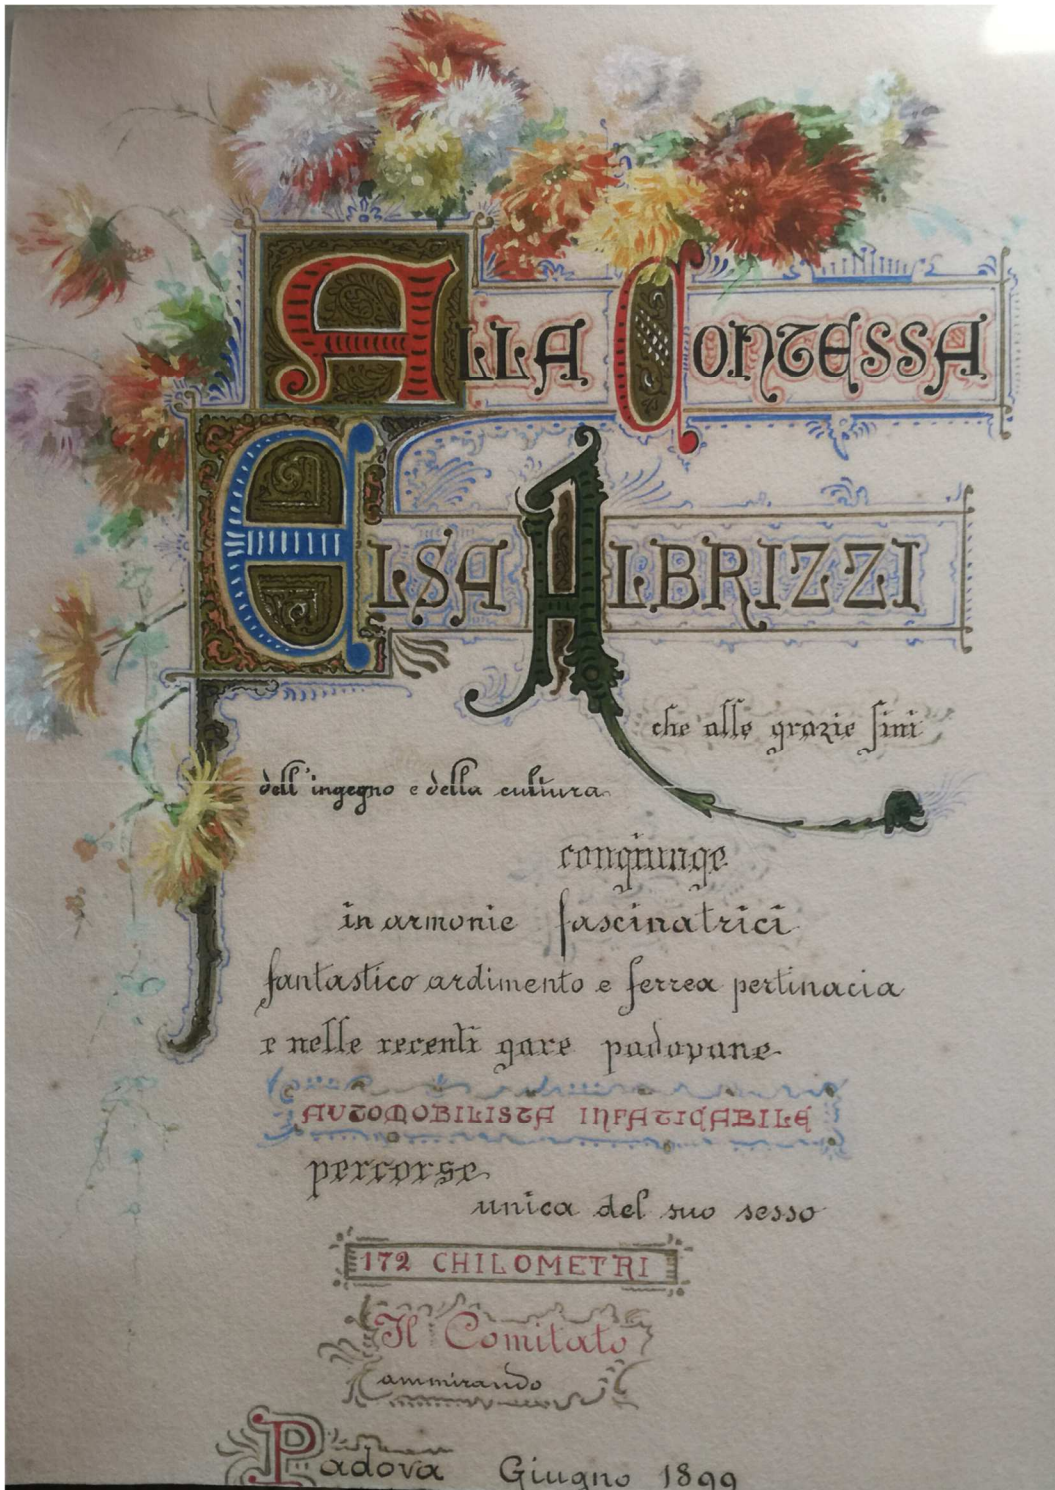 ALLA CONTESSA
ELSA ALBRIZZI
che alle grazie fini
dell'ingegno e della cultura
congiunge
in armonie fascinatrici
fantastico ardimento e ferrea pertinacia
e nelle recenti gare padovane
AUTOMOBILISTA INFATICABILE
percorse
unica del suo sesso
172 CHILOMETRI
Il Comitato
ammirando
Padova Giugno 1899